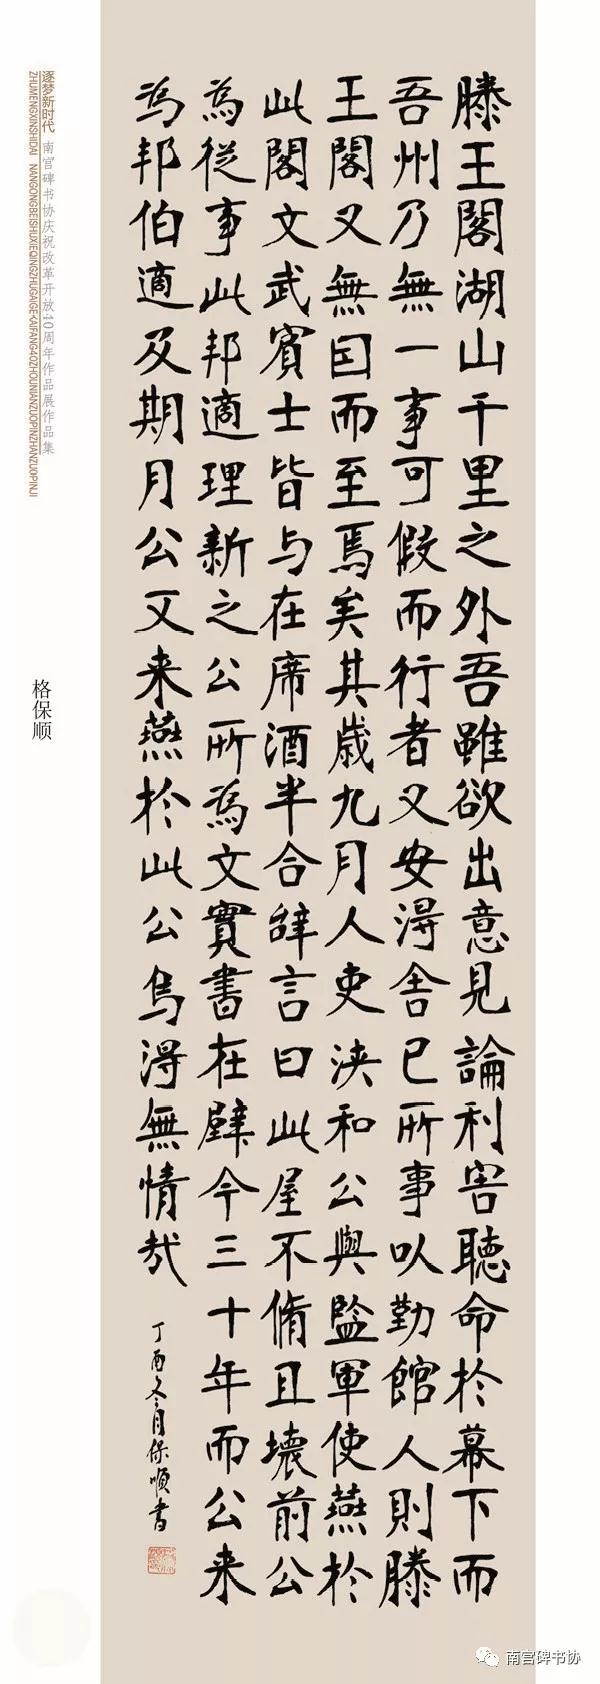 逐梦新时代 南宫碑书协庆祝改革开放40周年作品展作品集
ZHUMENGXINSHIDAI NANGONGBEISHUXIEQINGZHUGAIGEKAIFANG40ZHOUNIANZUOPINZHANZUOPINJI
格保顺
滕王閣湖山千里之外吾雖欲出意見論利害聽命於幕下而
吾州乃無一事可假而行者又安得舍己所事以勤館人則滕
王閣又無囙而至焉矣其歲九月人吏浹和公與監軍使燕於
此閣文武賓士皆与在席酒半合辞言曰此屋不脩且壞前公
為從事此邦適理新之公所為文實書在壁今三十年而公来
為邦伯適及期月公又来燕於此公烏得無情哉
丁酉冬月保順書
南宫碑书协